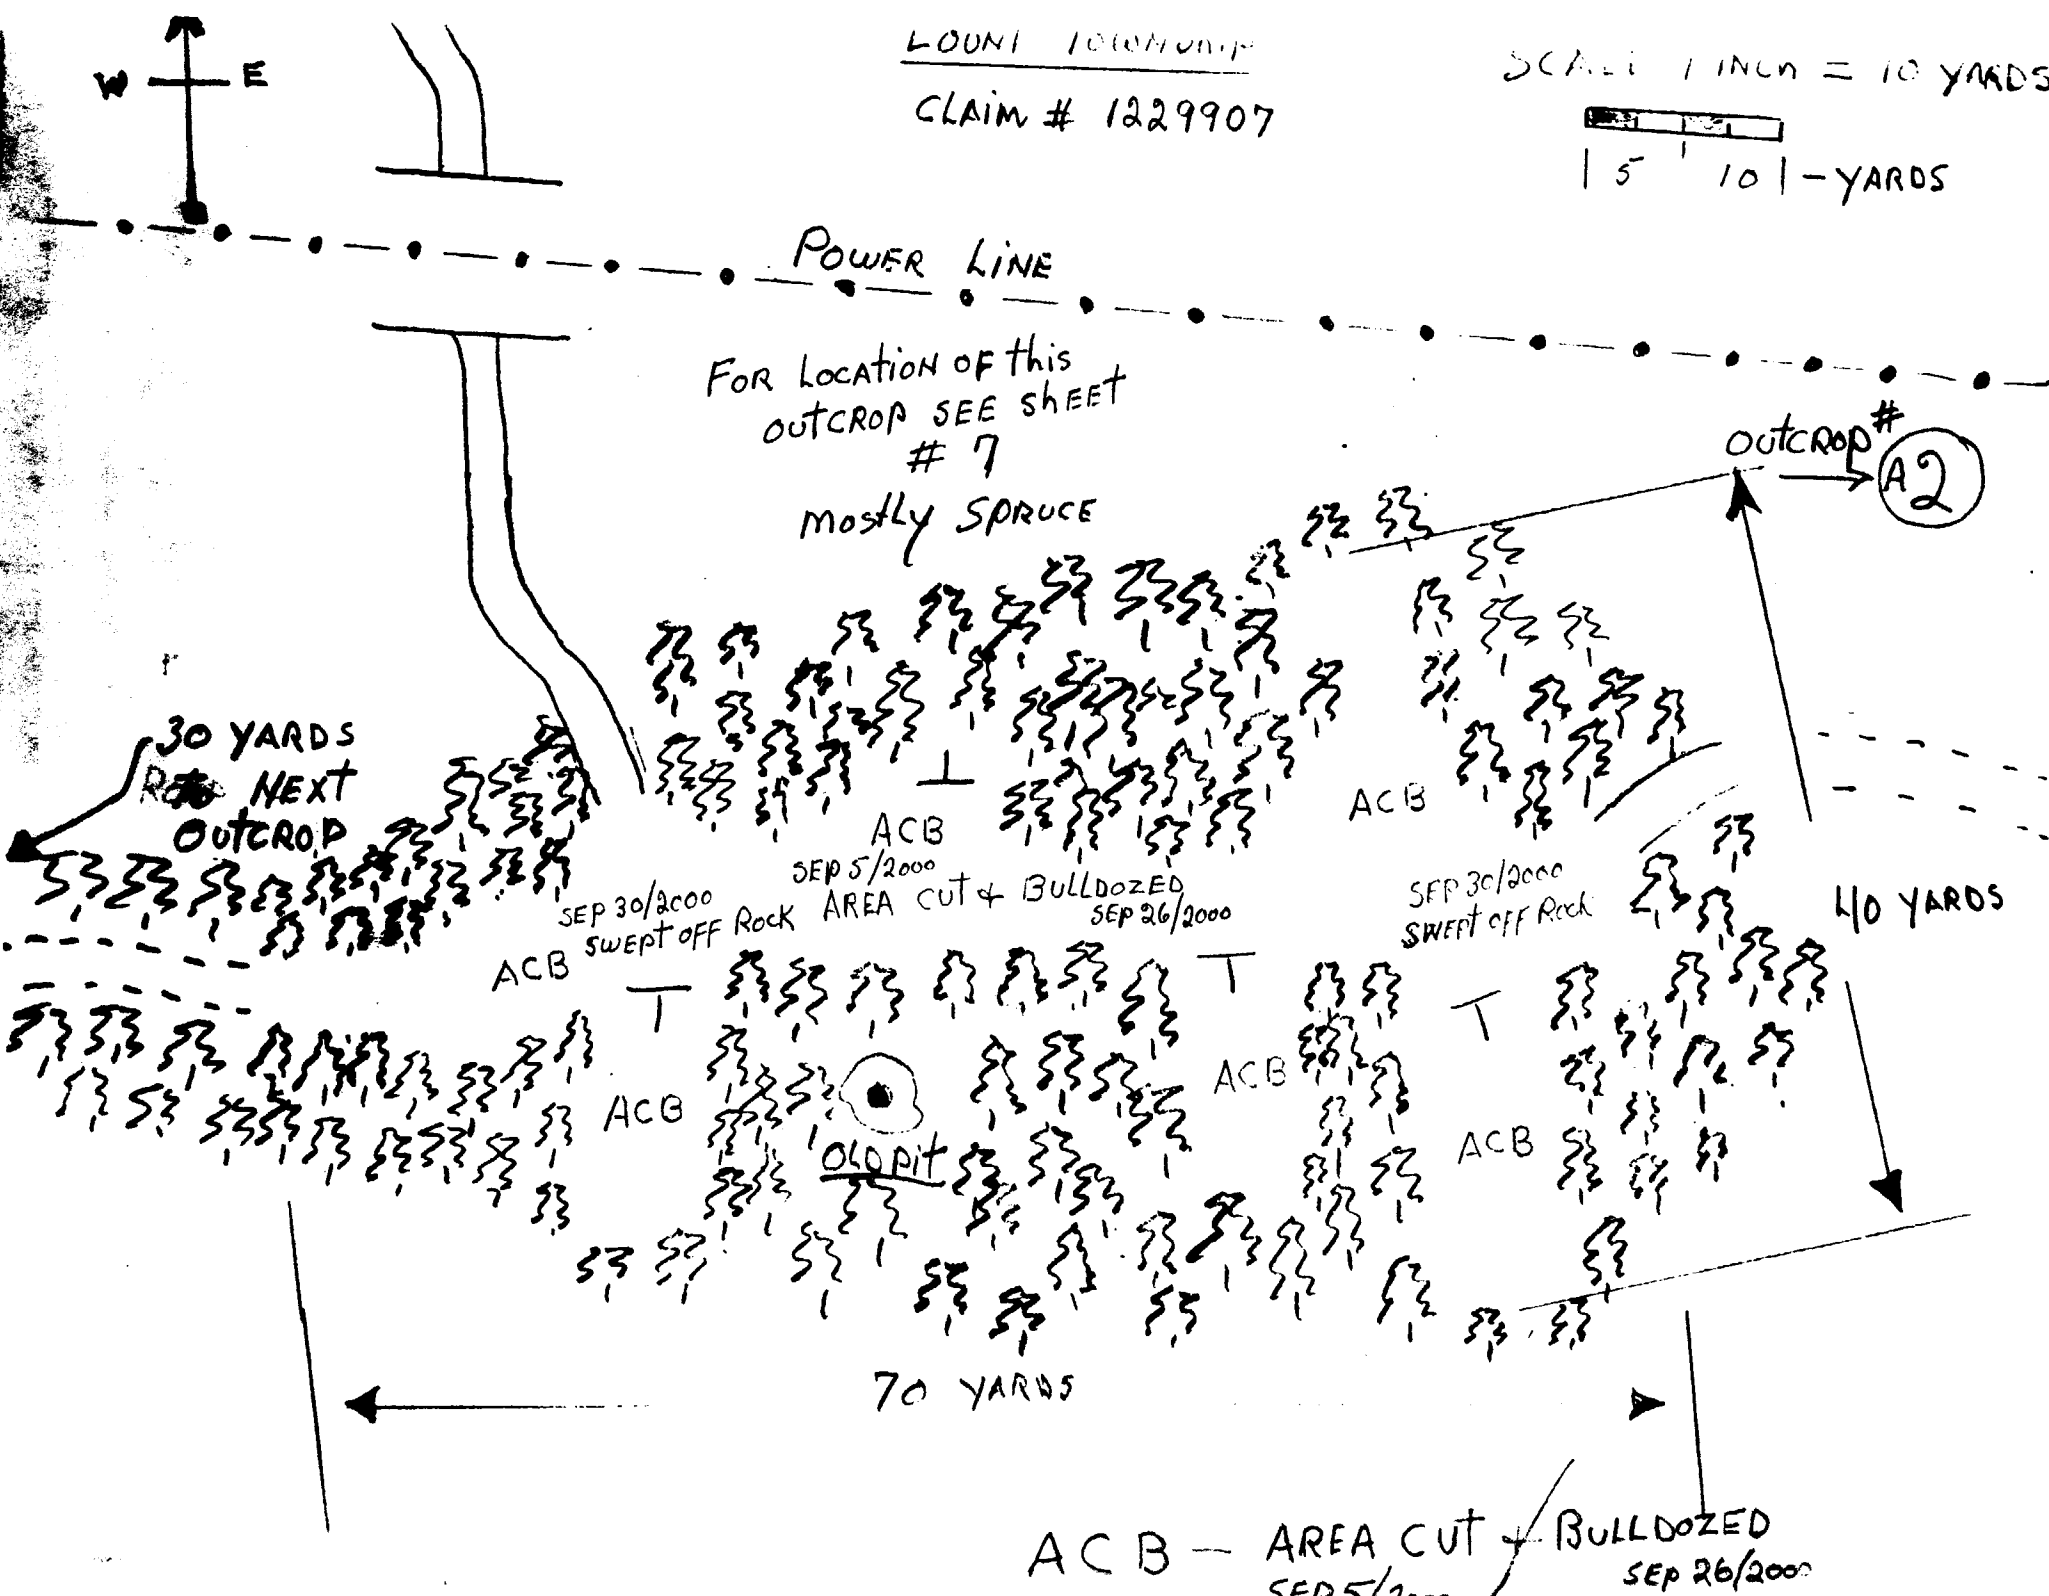 W E
LOUNT TOWNSHIP
CLAIM # 1229907
SCALE 1 INCH = 10 YARDS
5 10 - YARDS
POWER LINE
FOR LOCATION OF this
OUTCROP SEE SHEET
# 7
mostly SPRUCE
OUTCROP #
A2
30 YARDS
NEXT
OUTCROP
ACB
ACB
SEP 5/2000
AREA CUT & BULLDOZED
SEP 26/2000
SEP 30/2000
SWEPT OFF ROCK
SEP 30/2000
SWEPT OFF Rock
40 YARDS
ACB
ACB
ACB
ACB
OLD Pit
70 YARDS
ACB - AREA CUT & BULLDOZED
SEP 5/2000 SEP 26/2000